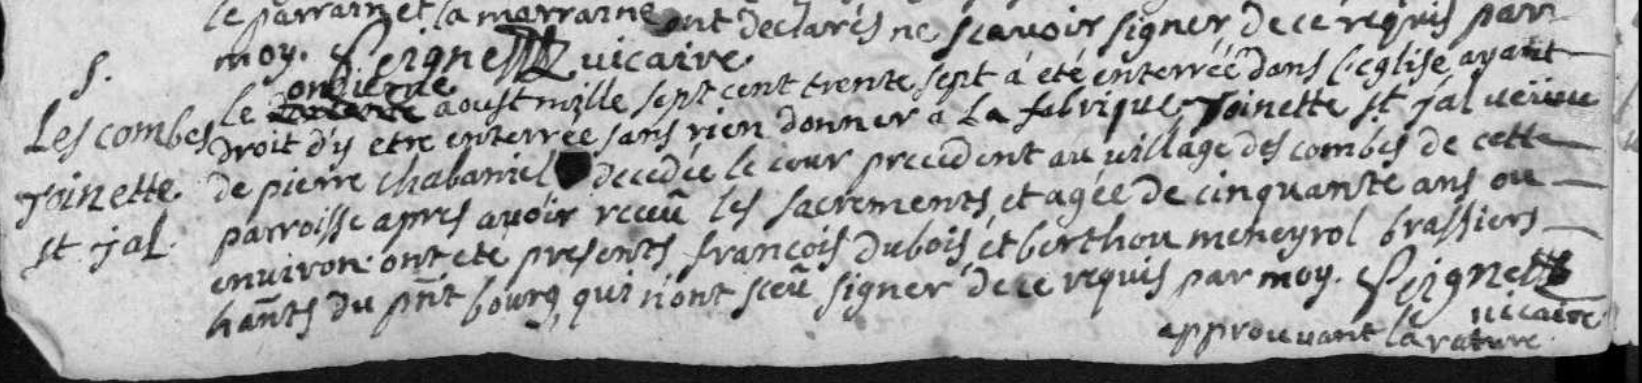 le parrain et la marraine ont declarés ne scavoir signer de ce requis par
moy. Seignette vicaire.
S.
Les combes
Toinette
st jal.
onzieme
le aoust mille sept cent trente sept á eté enterreé dans l'eglise ayant
droit d'y etre enterrée sans rien donner á La fabrique Toinette st jal veüve
de pierre chabaniel decedée le iour precedent au village des combes de cette
parroisse apres auoir receu les sacrements et agée de cinquante ans ou
enuiron. ont ete presents francois dubois et berthou meneyrol brassiers
hants du pnt bourg qui n'ont sceu signer de ce requis par moy. Seignette
vicaire
approuuant la rature